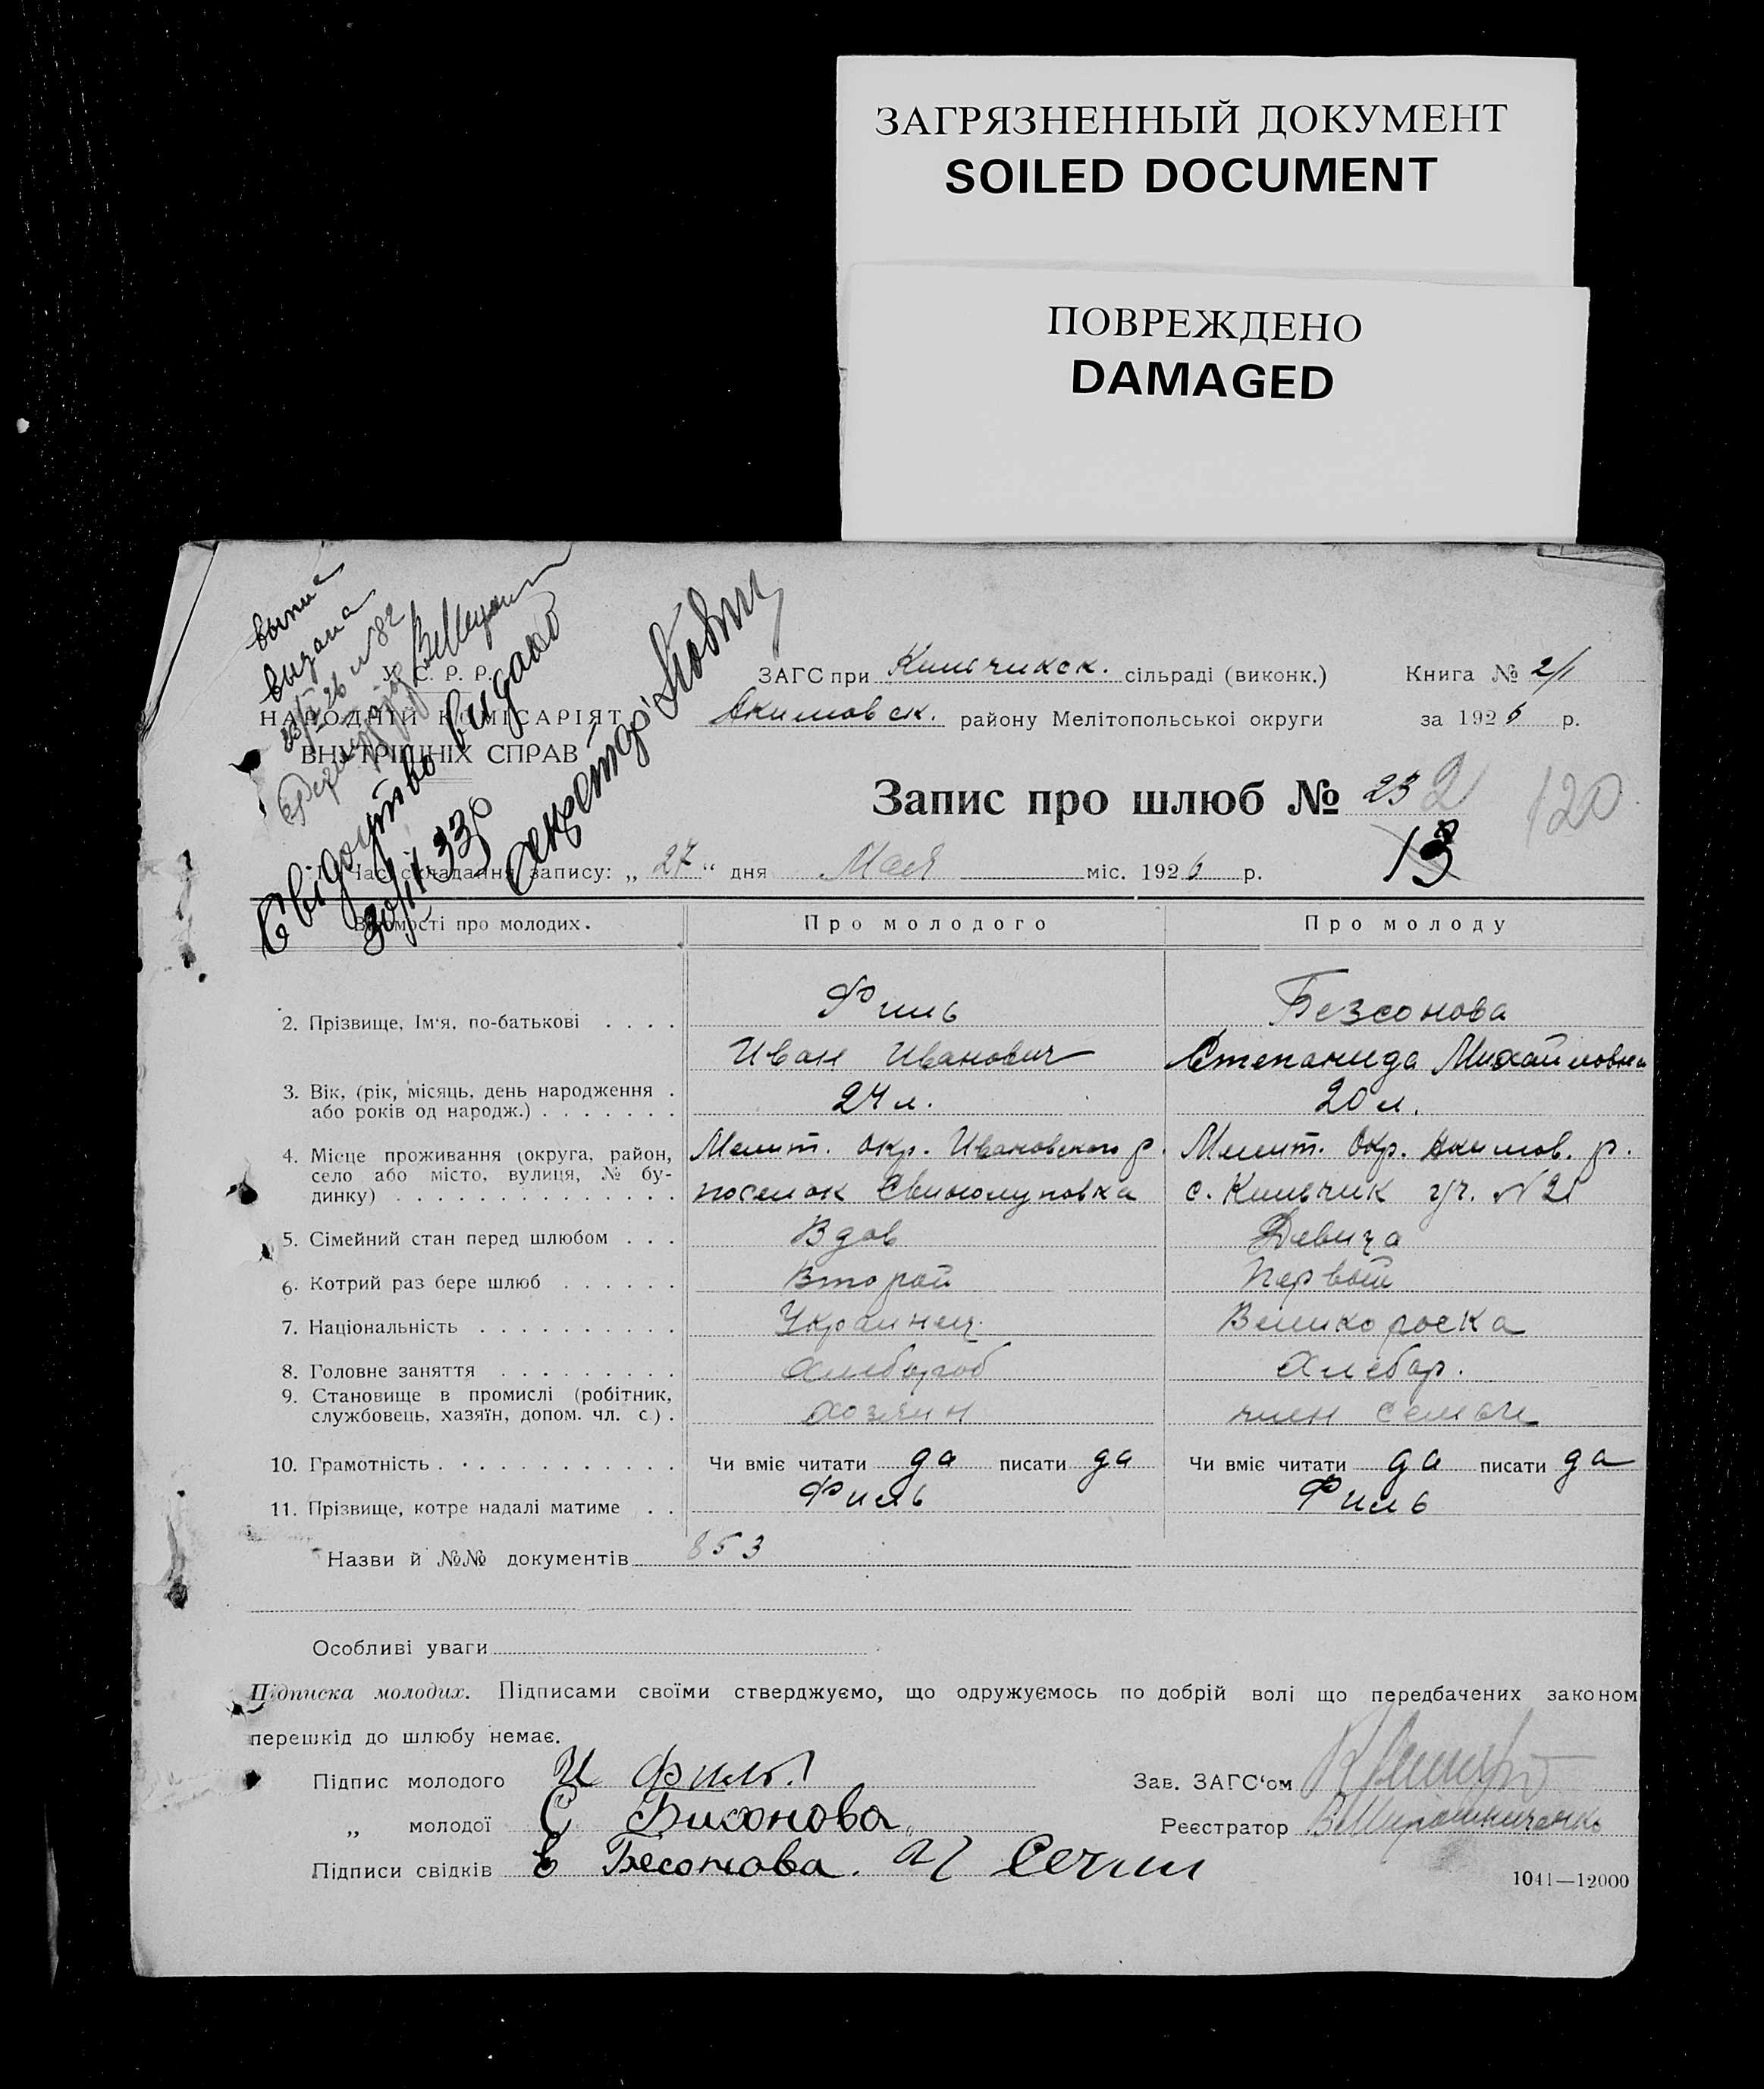 ЗАГРЯЗНЕННЫЙ ДОКУМЕНТ
SOILED DOCUMENT
ПОВРЕЖДЕНО
DAMAGED
выпис
выдана
У. С. Р. Р.
НАРОДНІЙ КОМІСАРІЯТ
ВНУТРІШНІХ СПРАВ
Свідоцтво видано
ЗАГС при Кильчикск. сільраді (виконк.) Книга № 2/1
Акимовск. району Мелітопольської округи за 1926 р.
Запис про шлюб № 23 2 120
13
1. Час складання запису: „ 27 “ дня Мая міс. 1926 р.
Відомості про молодих. Про молодого Про молоду
2. Прізвище, Ім'я, по-батькові . . . . Филь Безсонова
Иван Иванович Степанида Михайловна
3. Вік, (рік, місяць, день народження . або років од народж.) . . . . . . . 24 л. 20 л.
4. Місце проживання (округа, район, село або місто, вулиця, № будинку) . . . . . . . . . . . . . .
Мелит. окр. Ивановского р. Мелит. Окр. Акимов. р.
поселок с. Кильчик уч. № 21
5. Сімейний стан перед шлюбом . . . Вдов Девица
6. Котрий раз бере шлюб . . . . . . Второй Первый
7. Національність . . . . . . . . . . Украинец. Великороска
8. Головне заняття . . . . . . . . . Хлебороб Хлебор.
9. Становище в промислі (робітник, службовець, хазяїн, допом. чл. с.) . хозяин член семьи
10. Грамотність . . . . . . . . . . . . Чи вміє читати да писати да Чи вміє читати да писати да
11. Прізвище, котре надалі матиме . . Филь Филь
Назви й №№ документів 853
Особливі уваги
Підписка молодих. Підписами своїми стверджуємо, що одружуємось по добрій волі що передбачених законом
перешкід до шлюбу немає.
Підпис молодого И Филь Зав. ЗАГС'ом
„ молодої С Бисонова Реєстратор ВМирошниченко
Підписи свідків Е Бесонова.
1041—12000